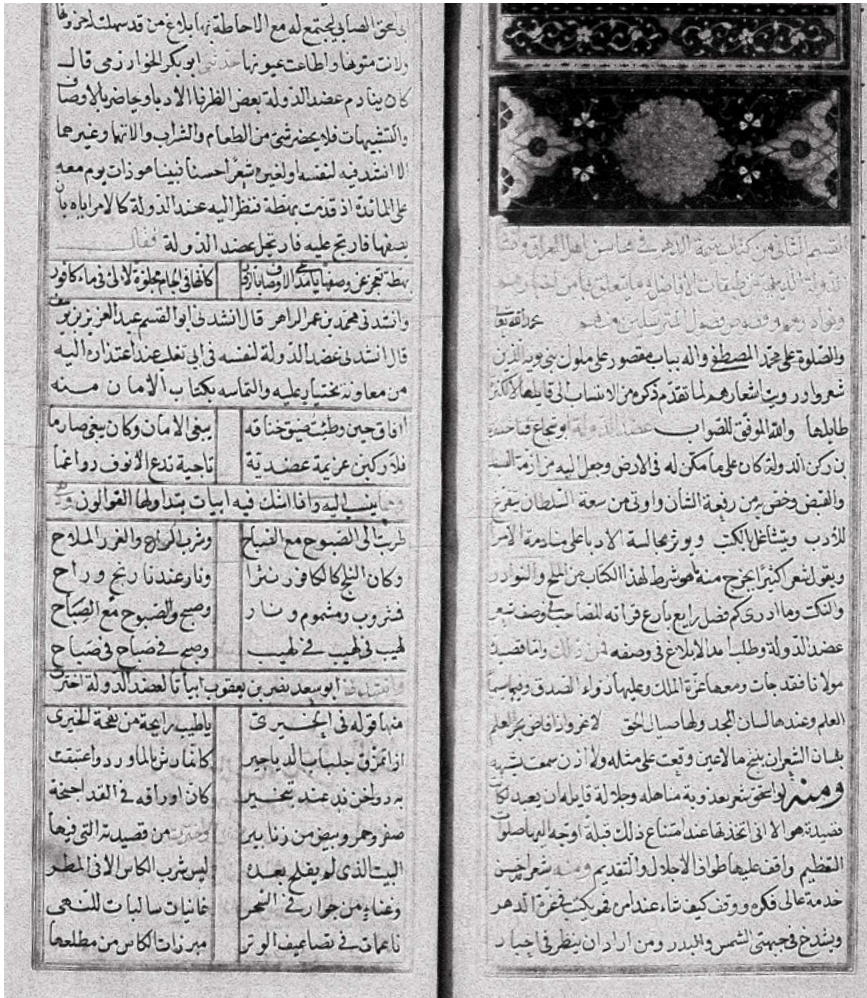 القسم الثانى من كتاب يتيمة الدهر فى محاسن اهل العراق
الدولة الديلمية من طبقات الافاضل وما يتعلق بها من اخبارهم
ونوادرهم وفصوص من فصول المترسلين منهم
والصلوة على محمد المصطفى واله باب مقصور على ملوك بنى بويه الذين
شعروا ورويت اشعارهم لما تقدم ذكره من الانتساب الى قايلها لا لكثرة
طايلها والله الموفق للصواب عضد الدولة ابو شجاع فناخسرو
بن ركن الدولة كان على ما مكن له فى الارض وجعل اليه من ازمة البسط
والقبض وخص به من رفعة الشان واوتى من سعة السلطان يتفرغ
للادب ويتشاغل بالكتب ويوثر مجالسة الادبا على منادمة الامرا
ويقول شعرا كثيرا يخرج منه ما هو شرط لهذا الكتاب من الملح والنوادر
والنكت وما ادرى كم فصل رايع بارع قراته للصاحب فى وصف شعر
عضد الدولة وطلبا مد الابلاغ فى وصفه فمن ذلك واما قصيدة
مولانا فقد جات ومعها عزة الملك وعليها رواء الصدق وفيها سيما
العلم وعندها لسان المجد ولها صيال الحق لا غرو اذا فاض بحر العلم
على لسان الشعر ان ينتج ما لا عين وقعت على مثله ولا اذن سمعت بشبهه
ومنه لو استحق شعر يعبد لعذوبة مناهله وجلالة قايله ان يعبد لكانت
قصيدته هو الا انى اتخذتها عند امتناع ذلك قبلة اوجه اليها صلوات
التعظيم واقف عليها طواف الاجلال والتقديم ومنه شعر احسن
خدمة عالى فكره ووقف كيف شاء عند امره فهو يكتب فى غرة الدهر
ويشدخ فى جبهتى الشمس والبدر ومن اراد ان ينظر فى اخبار
ابى اسحق الصابى ليجتمع له مع الاحاطة بها بلاغ من قد سهلت له حزونها
ولانت متونها واطاعت عيونها حدثنى ابو بكر الخوارزمى قال
كان ينادم عضد الدولة بعض الظرفا الادبا ويحاضر بالاوصاف
والتشبيهات فلا يحضر شئ من الطعام والشراب والاتها وغيرهما
الا انشد فيه لنفسه او لغيره شعرا حسنا فبينا هو ذات يوم معه
على المائدة اذ قدمت بهطة فنظر اليه عضد الدولة كالامر اياه بان
يصفها فارتج عليه فارتجل عضد الدولة فقال
بهطة تعجز عن وصفها يا مدعى الاوصاف بالزور كانها فى الجام مجلوة لالئ فى ماء كافور
وانشدنى محمد بن عمر الزاهر قال انشدنى ابو القسم عبد العزيز بن يوسف
قال انشدنى عضد الدولة لنفسه فى ابى تغلب عند اعتذاره اليه
من معاونة بختيار عليه والتماسه كتاب الامان منه
اافاق حين وطيت ضيق خناقه يبغى الامان وكان يبغى صارما
فلاركبن عزيمة عضدية تاجية تدع الانوف رواغما
ومما ينسب اليه وانا اشك فيه ابيات يتداولها القوالون وهى
طربت الى الصبوح مع الصباح وشرب الراح والغرر الملاح
وكان الثلج كالكافور نثرا ونار عند نارنج وراح
فمشروب ومشموم ونار وصبح والصبوح مع الصباح
لهيب فى لهيب فى لهيب وصبح فى صباح فى صباح
وانشدنى ابو سعد نصر بن يعقوب ابياتا لعضد الدولة اخترت
منها قوله فى الخيرى يا طيب رايحة من نفحة الخيرى
اذا تمزق جلباب الدياجير كانما رش بالماورد واعتبقت
به دواخن ند عند تبخير كان اوراقه فى القد اجنحة
صفر وحمر وبيض من زنابير واخترت من قصيدته التى فيها
البيت الذى لم يفلح بعده ليس شرب الكاس الا فى المطر
وغناء من جوار فى السحر غانيات سالبات للنهى
ناعمات فى تضاعيف الوتر مبرزات الكاس من مطلعها